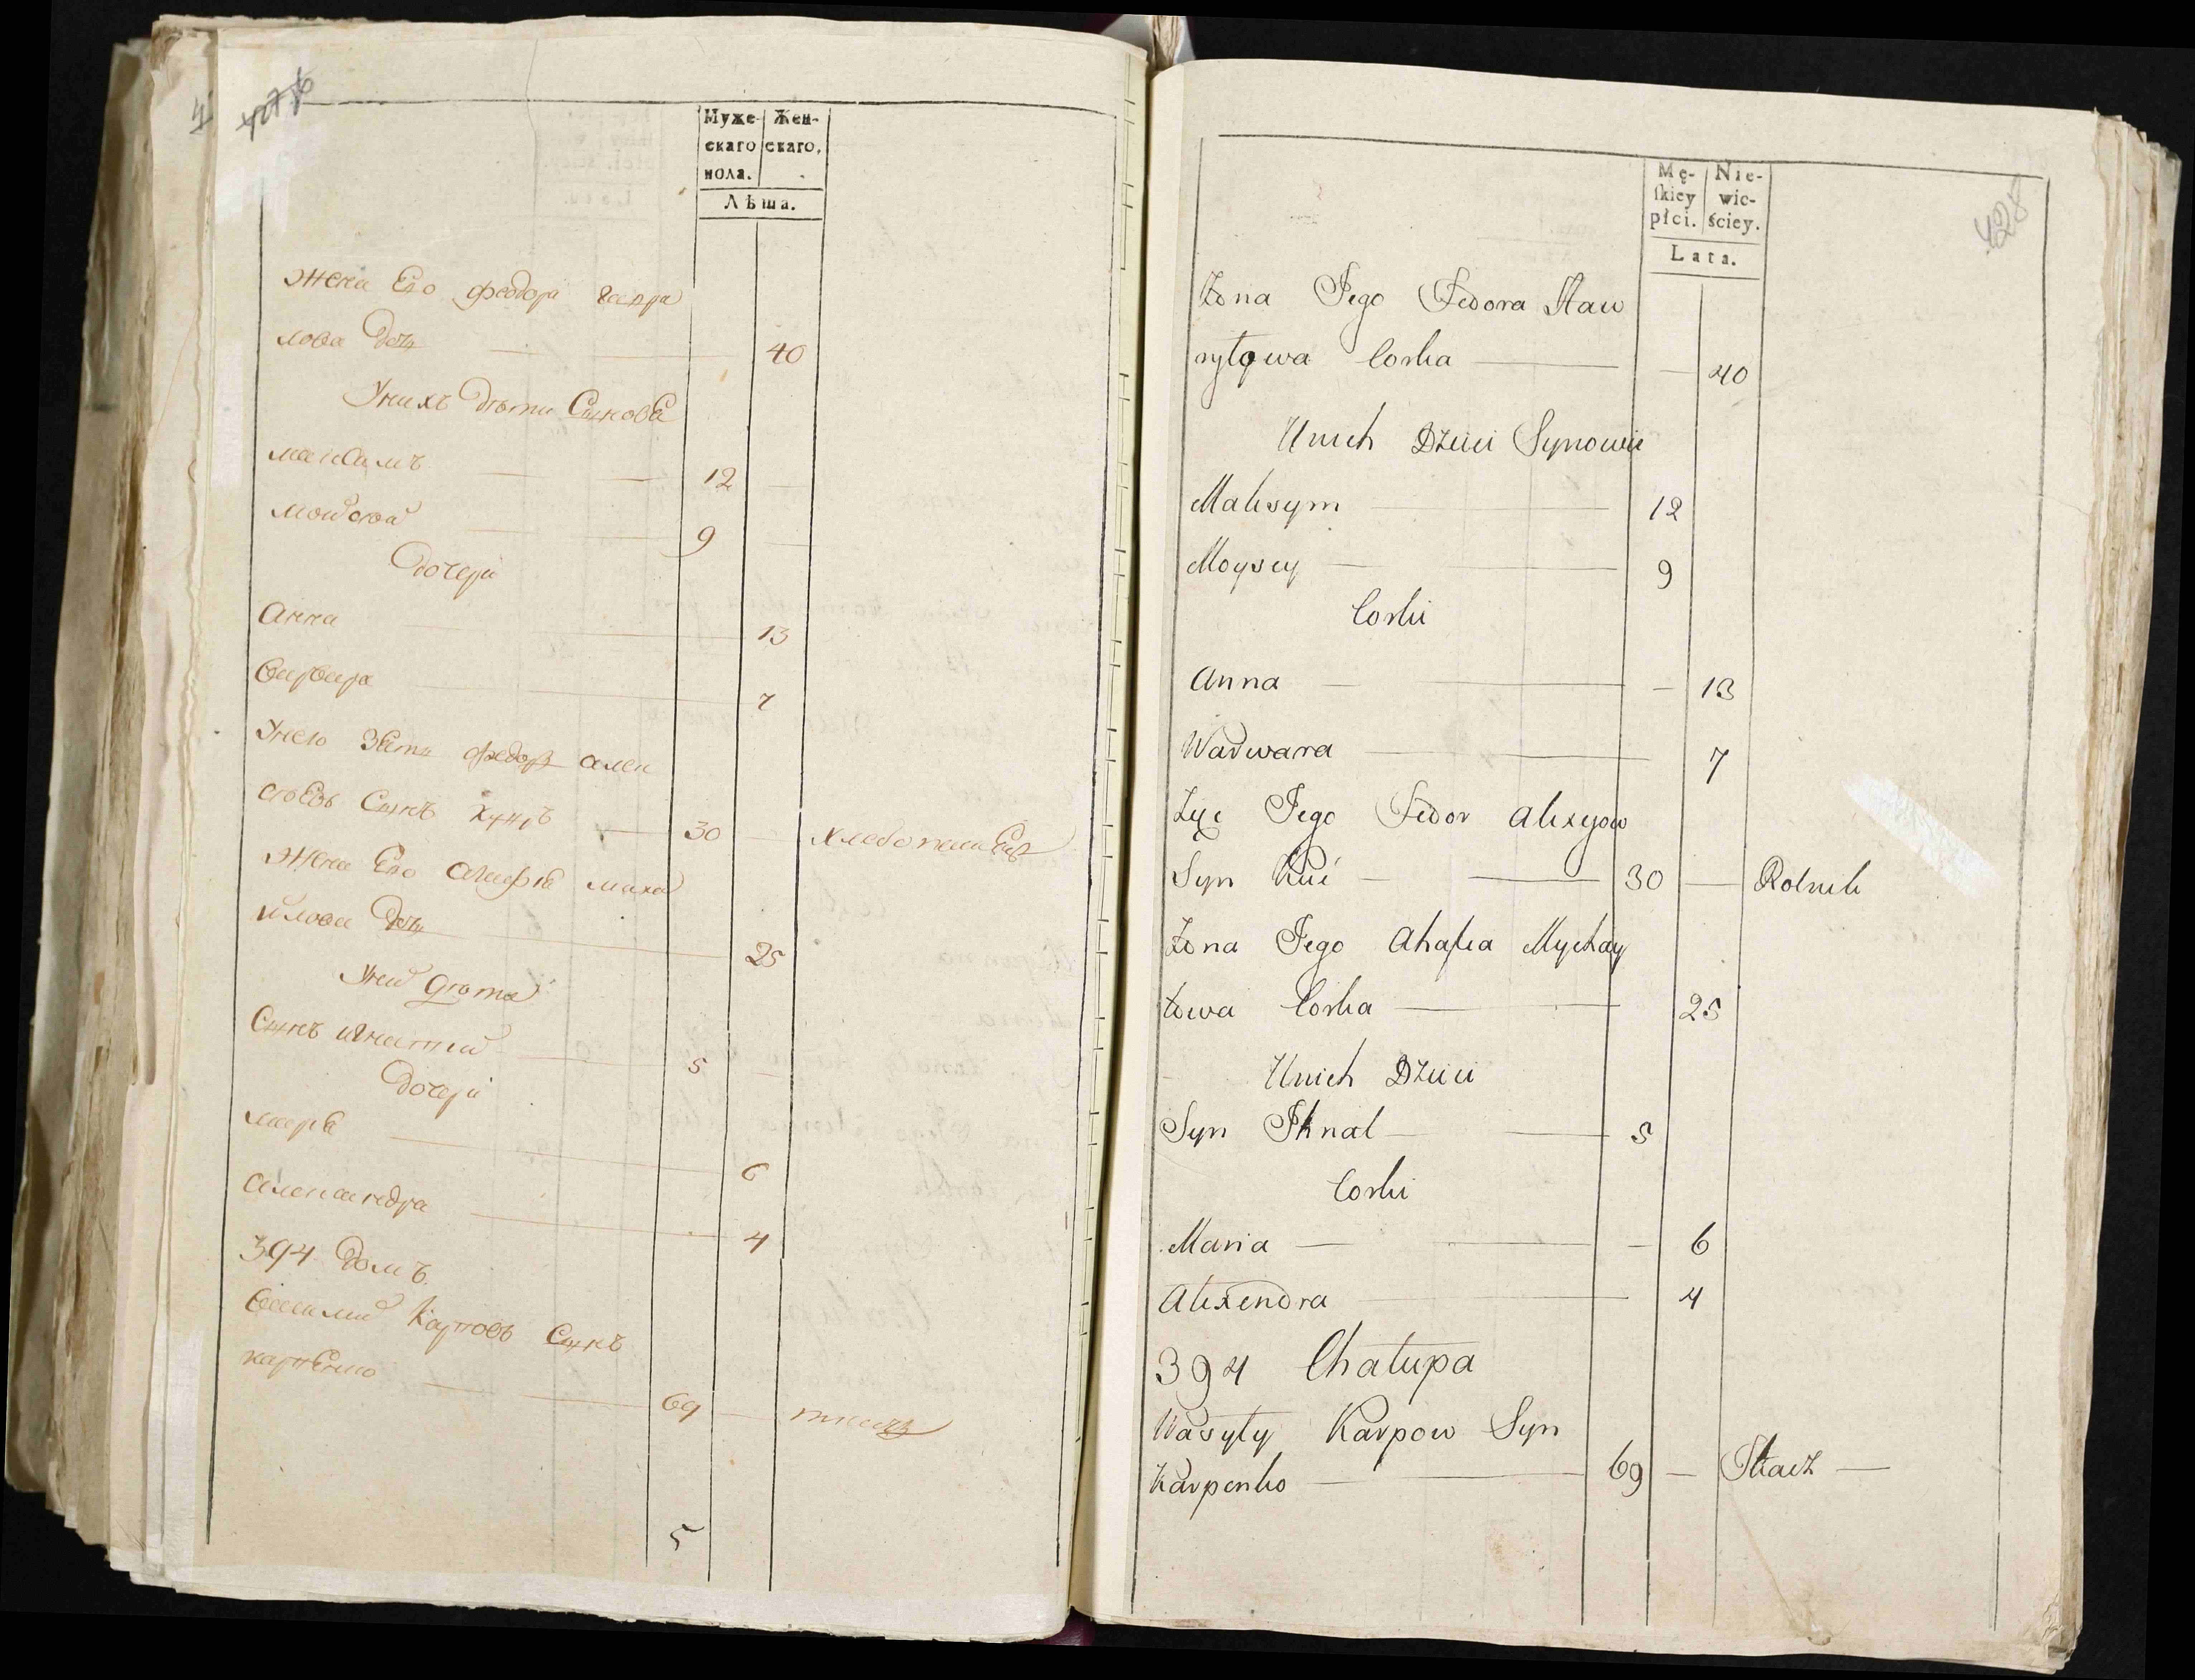 Муже- Жен-
скаго скаго,
пола.
Лѣта.
Жена Его Феодора Гаври
лова Дочь 40
У нихъ дѣти Сынова
Максимъ 12
Мойсей 9
Дочери
Анна 13
Варвара 7
У него Зять Федоръ Алек
сѣевъ Сынъ 30 хлебопашецъ
Жена Его Агафія Михай
илова Дочь 25
дѣти
Сынъ Игнатий 5
Дочери
Марія 6
Александра 4
394 Домъ
Василий Карповъ Сынъ
Карпенко 69 ткачъ
5
428
Mę- Nie-
ſkiey wie-
płci. ściey.
Lata.
Żona Jego Fedora Haw
ryłowa Corka 40
Unich Dzieci Synowie
Maksym 12
Moysey 9
Corki
Anna 13
Warwara 7
Zęć Jego Fedor Alexyow
Syn Kuć 30 Rolnik
Żona Jego Ahafia Mychay
łowa Corka 25
Unich Dzieci
Syn Ihnat 5
Corki
Maria 6
Alexendra 4
394 Chałupa
Wasyly Karpow Syn
Karpenko 69 Tkacz